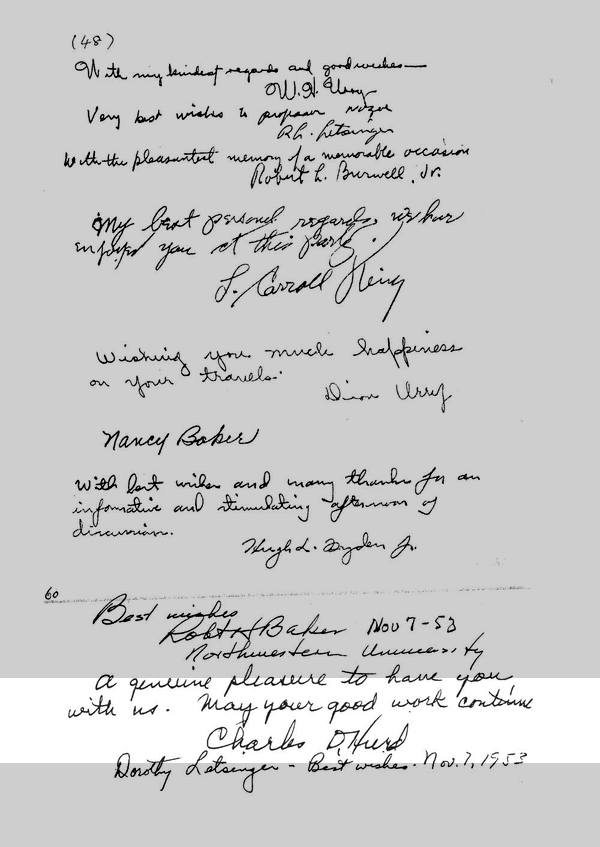 (48)
With my kindest regards and good wishes—
W.H. Urry
Very best wishes to professor Nozoe
R.L. Letsinger
With the pleasantest memory of a memorable occasion
Robert L. Burwell, Jr.
My best personal regards. We have
enjoyed you at this party.
L. Carroll King
Wishing you much happiness
on your travels.
Urry
Nancy Baker
With best wishes and many thanks for an
informative and stimulating afternoon of
discussion.
Hugh L. Dryden Jr.
60
Best wishes
Robt H Baker Nov 7-53
Northwestern University
A genuine pleasure to have you
with us. May your good work continue
Charles D. Hurd
Dorothy Letsinger - Best wishes. Nov. 7, 1953